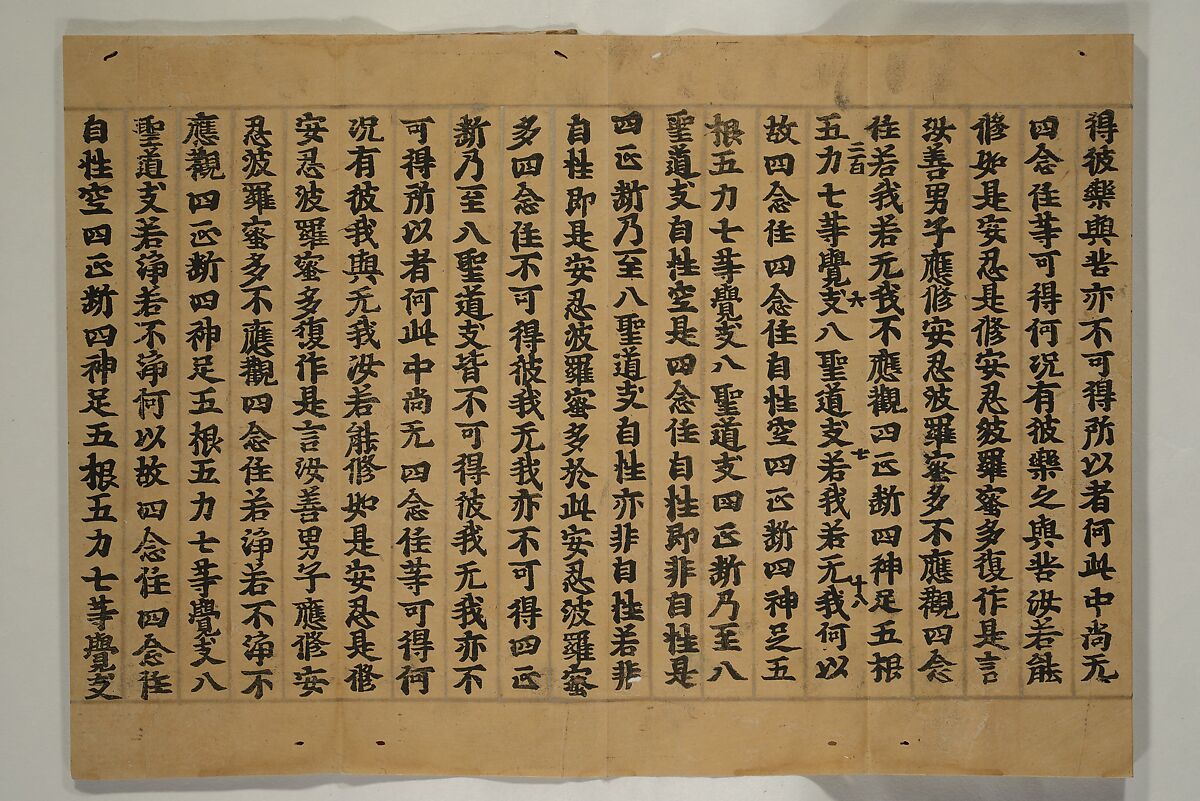 得彼樂與苦亦不可得所以者何此中尚无
四念住等可得何況有彼樂之與苦汝若能
修如是安忍是修安忍波羅蜜多復作是言
汝善男子應修安忍波羅蜜多不應觀四念
住若我若无我不應觀四正断四神足五根
三百 六 七 十八
五力七等覺支八聖道支若我若无我何以
故四念住四念住自性空四正断四神足五
根五力七等覺支八聖道支四正断乃至八
聖道支自性空是四念住自性即非自性是
四正断乃至八聖道支自性亦非自性若非
自性即是安忍波羅蜜多於此安忍波羅蜜
多四念住不可得彼我无我亦不可得四正
断乃至八聖道支皆不可得彼我无我亦不
可得所以者何此中尚无四念住等可得何
況有彼我與无我汝若能修如是安忍是修
安忍波羅蜜多復作是言汝善男子應修安
忍波羅蜜多不應觀四念住若淨若不淨不
應觀四正断四神足五根五力七等覺支八
聖道支若淨若不淨何以故四念住四念住
自性空四正断四神足五根五力七等覺支